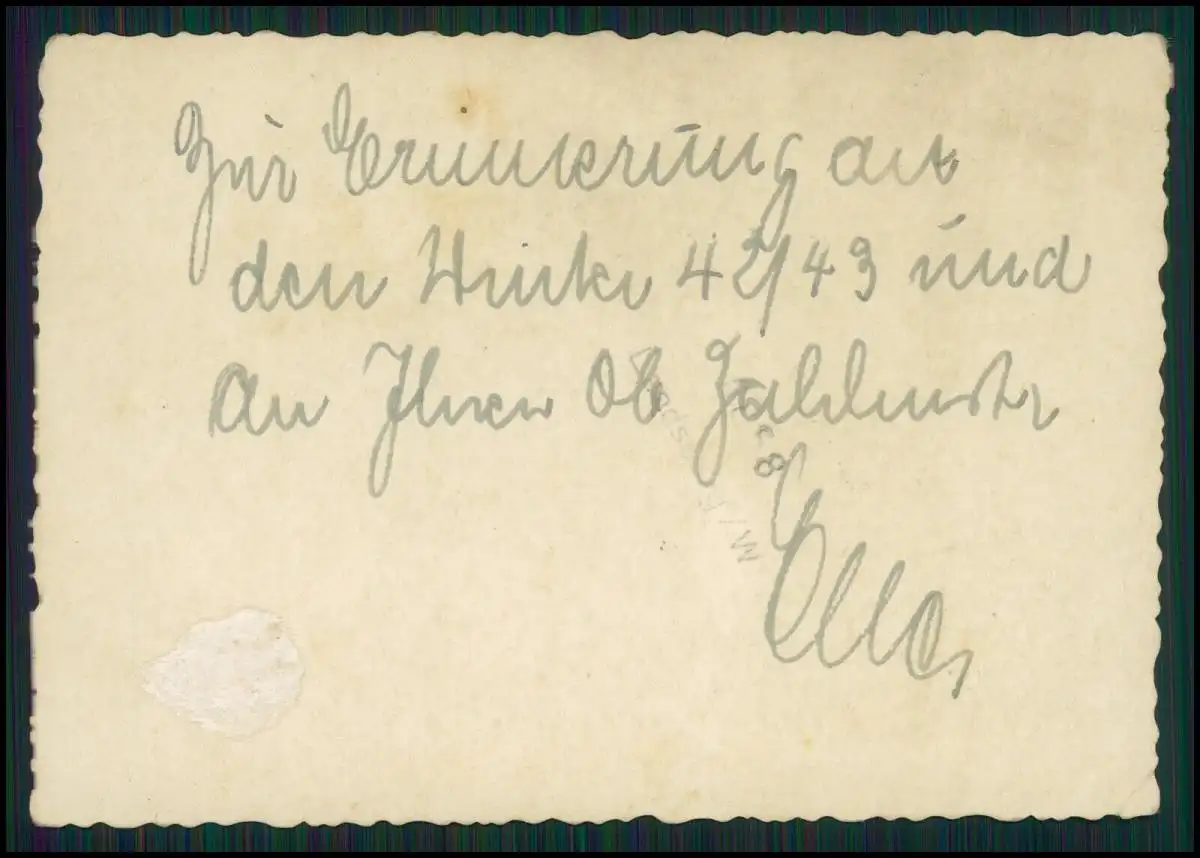 Zur Erinnerung an
den Winter 42/43 und
an Ihren Ob Zahlmstr